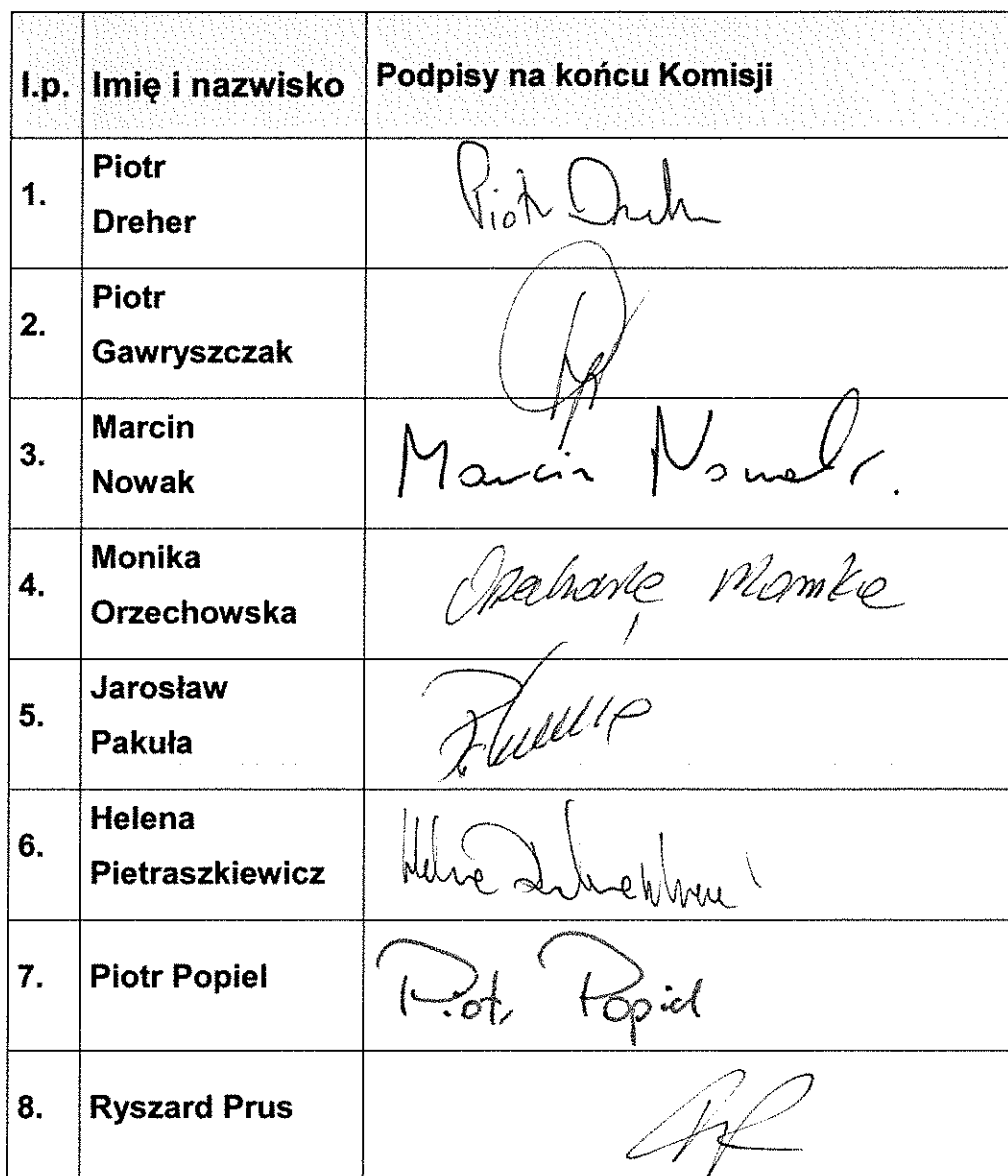 l.p. Imię i nazwisko Podpisy na końcu Komisji
1. Piotr Dreher Piotr
2. Piotr Gawryszczak
3. Marcin Nowak Marcin Nowak.
4. Monika Orzechowska Monika
5. Jarosław Pakuła
6. Helena Pietraszkiewicz
7. Piotr Popiel Piotr Popiel
8. Ryszard Prus